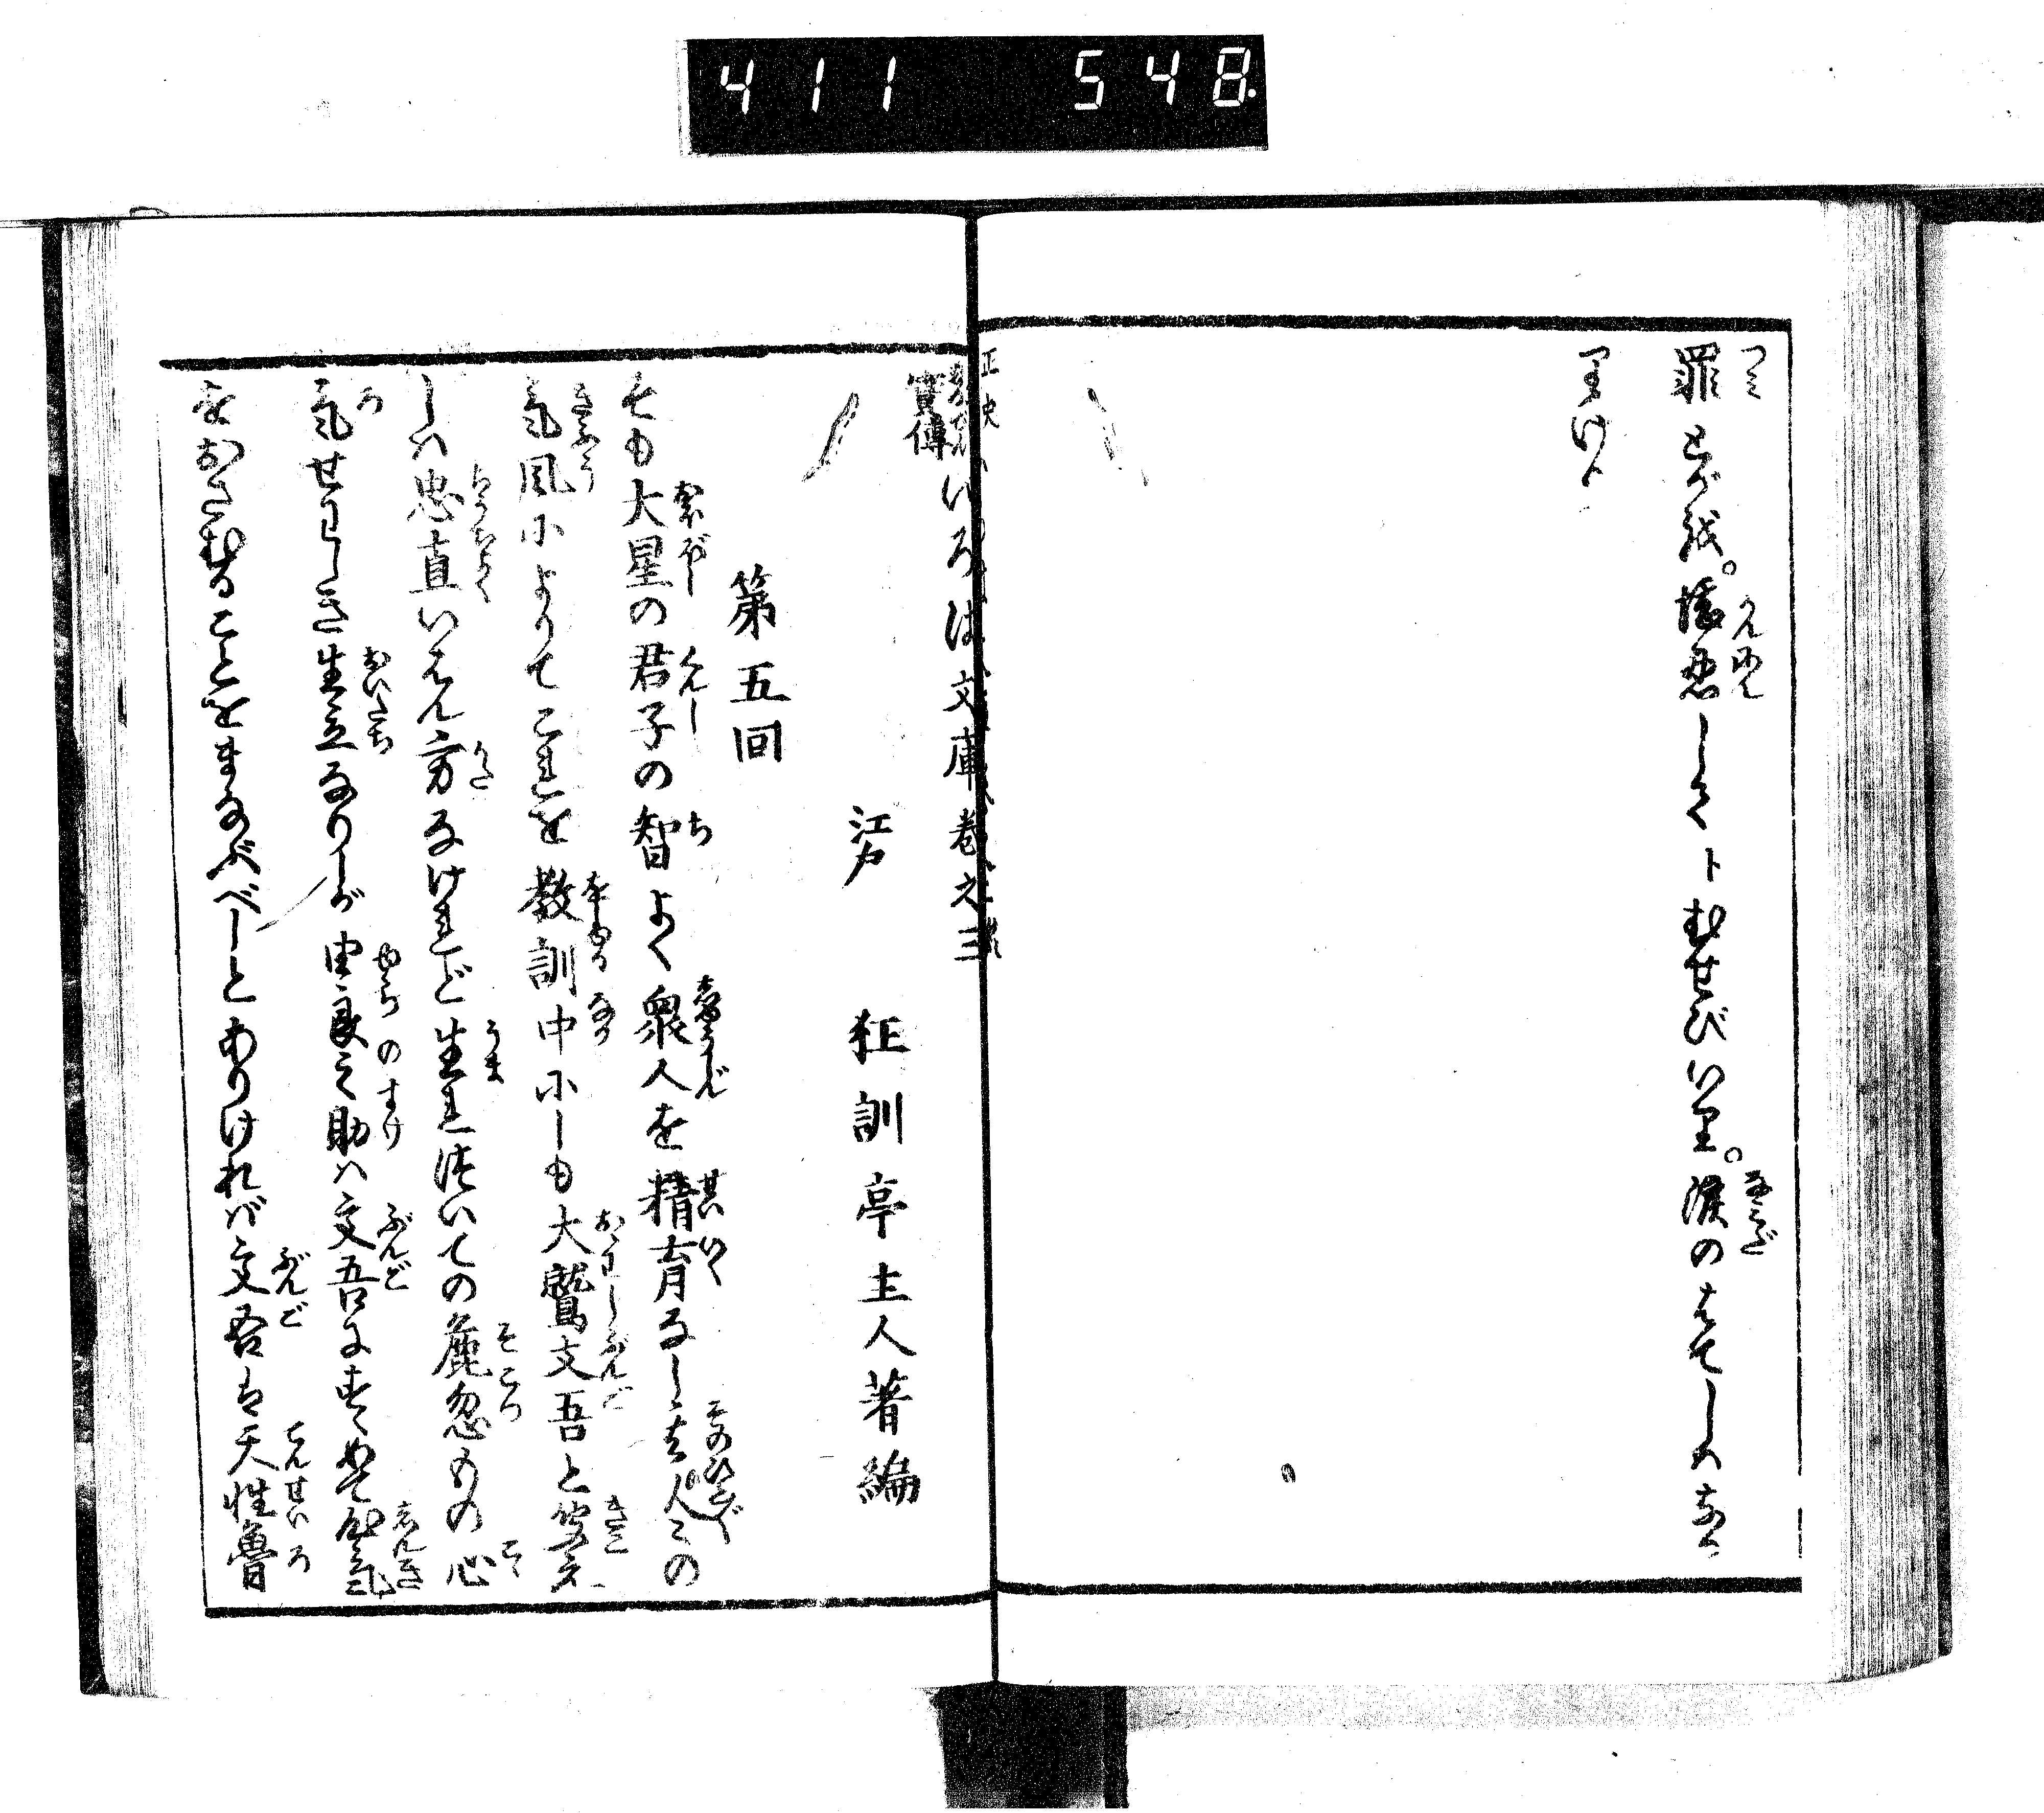 411 548.
罪とがを。堪忍してトむせびいり。涙のはてしのあら
りけり
正史實傳いろは文庫巻之三
江戸 狂訓亭主人著編
第五回
そも大星の君子の智よく衆人を精育なし其人々の
氣風によりてこれを教訓中にしも大鷲文吾と聞え
しハ忠直いはん方なけれど生れ得ての麁忽もの心
氣せわしき生立なりしが由良之助ハ文吾にすゝめて
をおさむることをまなぶべしとありけれバ文吾は天性魯